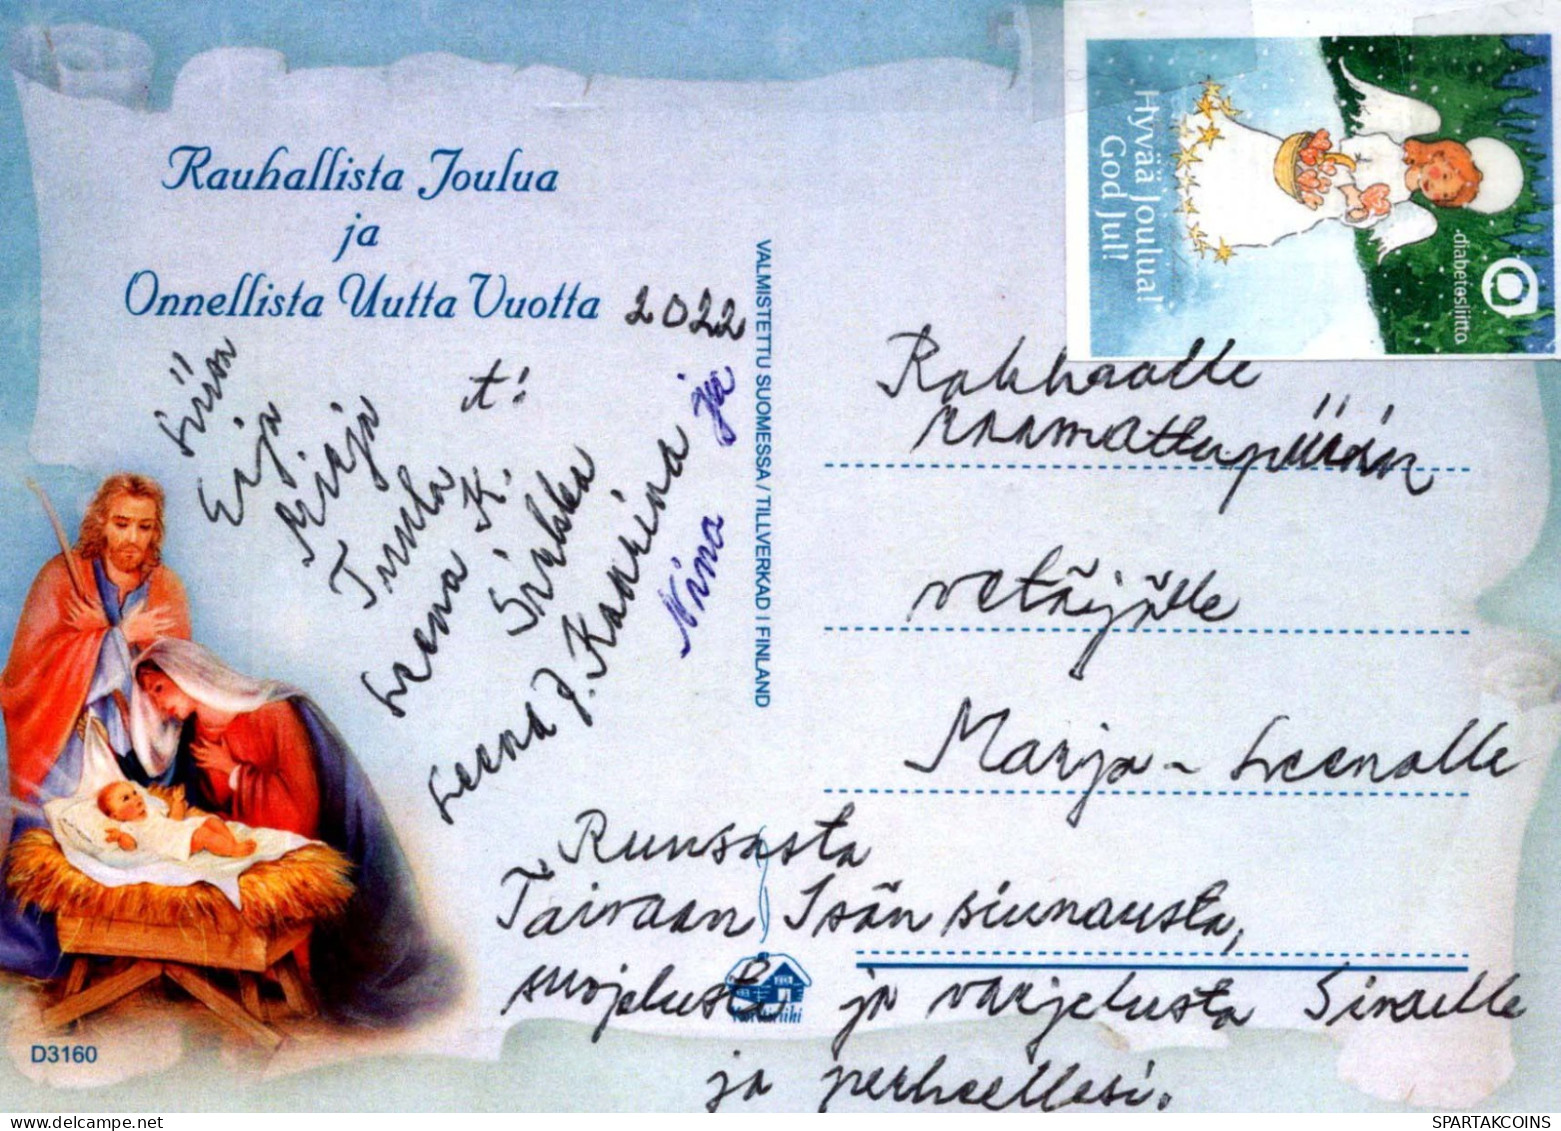 Rauhallista Joulua
ja
Onnellista Uutta Vuotta 2022
t:
Siiran
Eija
Mirja
Tuula
Leena K.
Sirkka
Leena J. Kaarina ja
Nina
VALMISTETTU SUOMESSA / TILLVERKAD I FINLAND
Hyvää Joulua!
God Jul!
-diabetesliitto
Rakkaalle
raamattupiirin
vetäjälle
Marja-Leenalle
Runsasta
Taivaan Isän siunausta,
suojelusta ja varjelusta Sinulle
ja perheellesi.
Korttiriihi
D3160
www.delcampe.net
SPARTAKCOINS